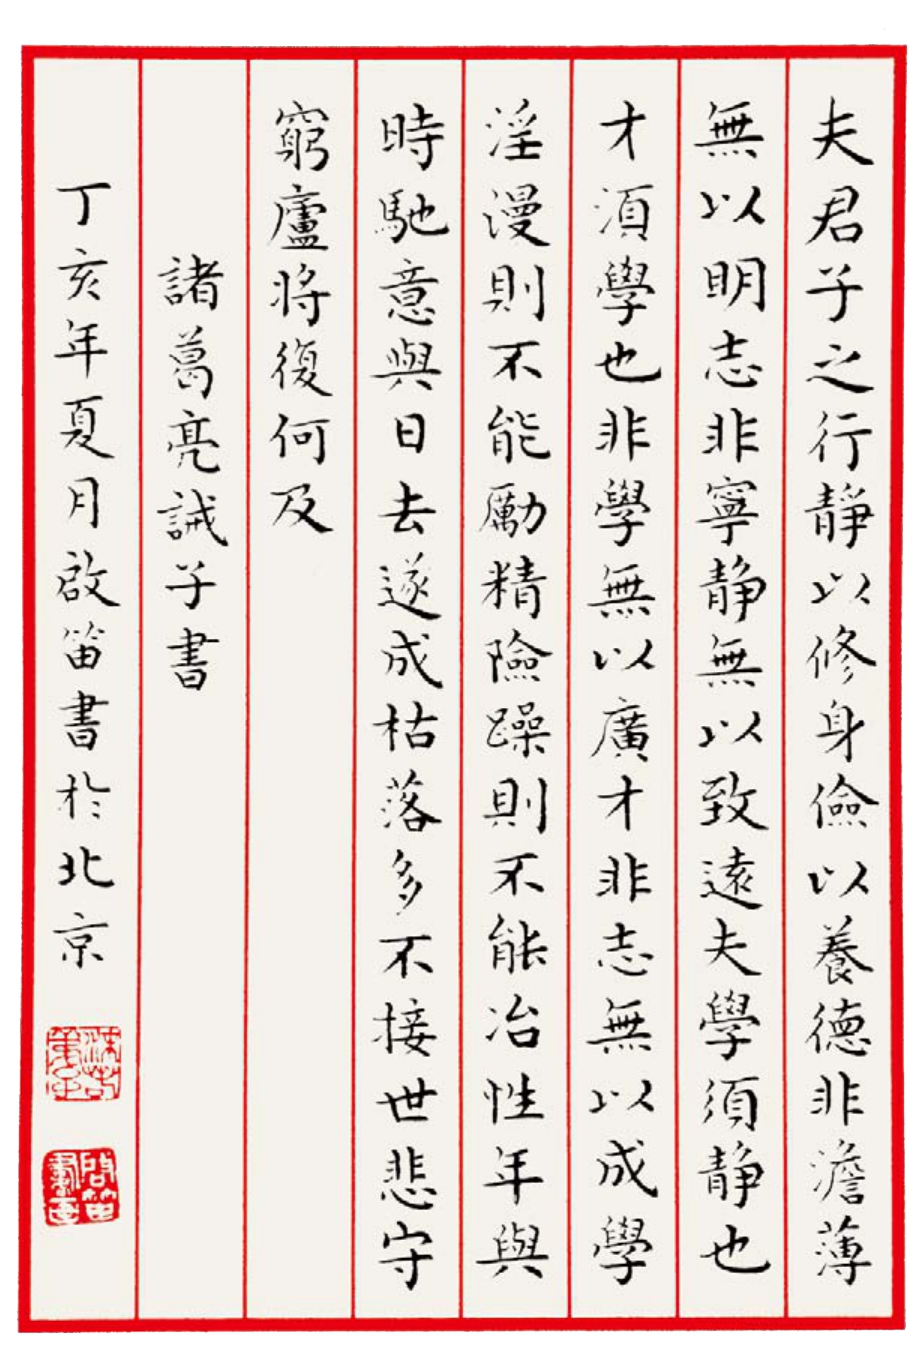 夫君子之行靜以修身儉以養德非澹薄
無以明志非寧靜無以致遠夫學須靜也
才須學也非學無以廣才非志無以成學
淫漫則不能勵精險躁則不能冶性年與
時馳意與日去遂成枯落多不接世悲守
窮廬將復何及
諸葛亮誡子書
丁亥年夏月啟笛書於北京